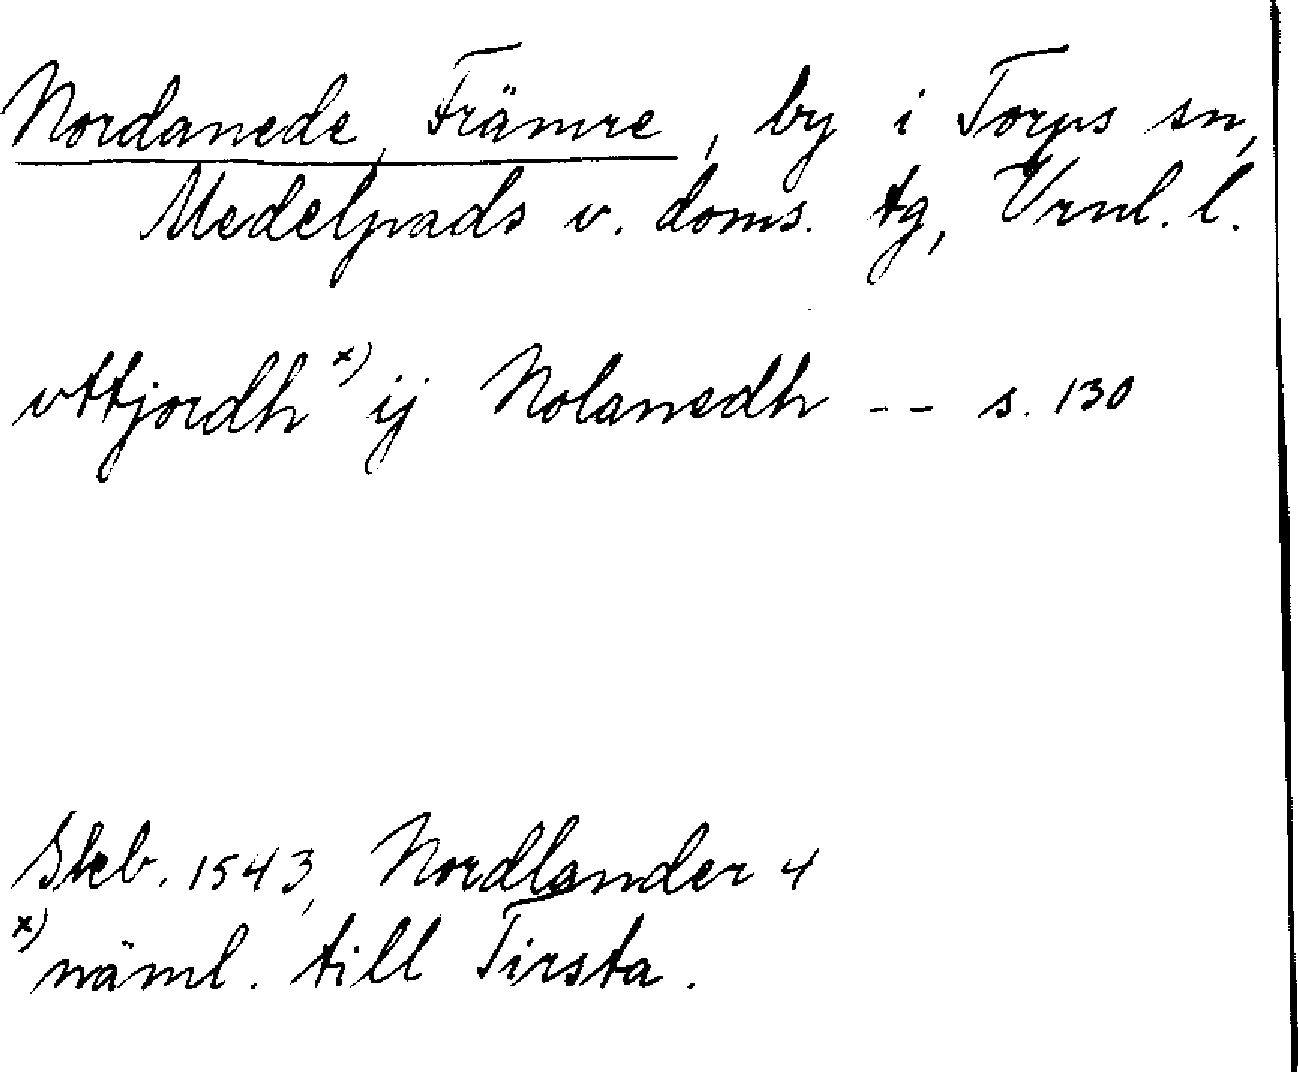 Nordanede, Främre, by i Torps sn,
Medelpads v. doms. tg, Vrnl. l.
vttjordh x) ij Nolanedh -- s. 130
Skb. 1543, Nordlander 4
x) näml. till Tirsta.